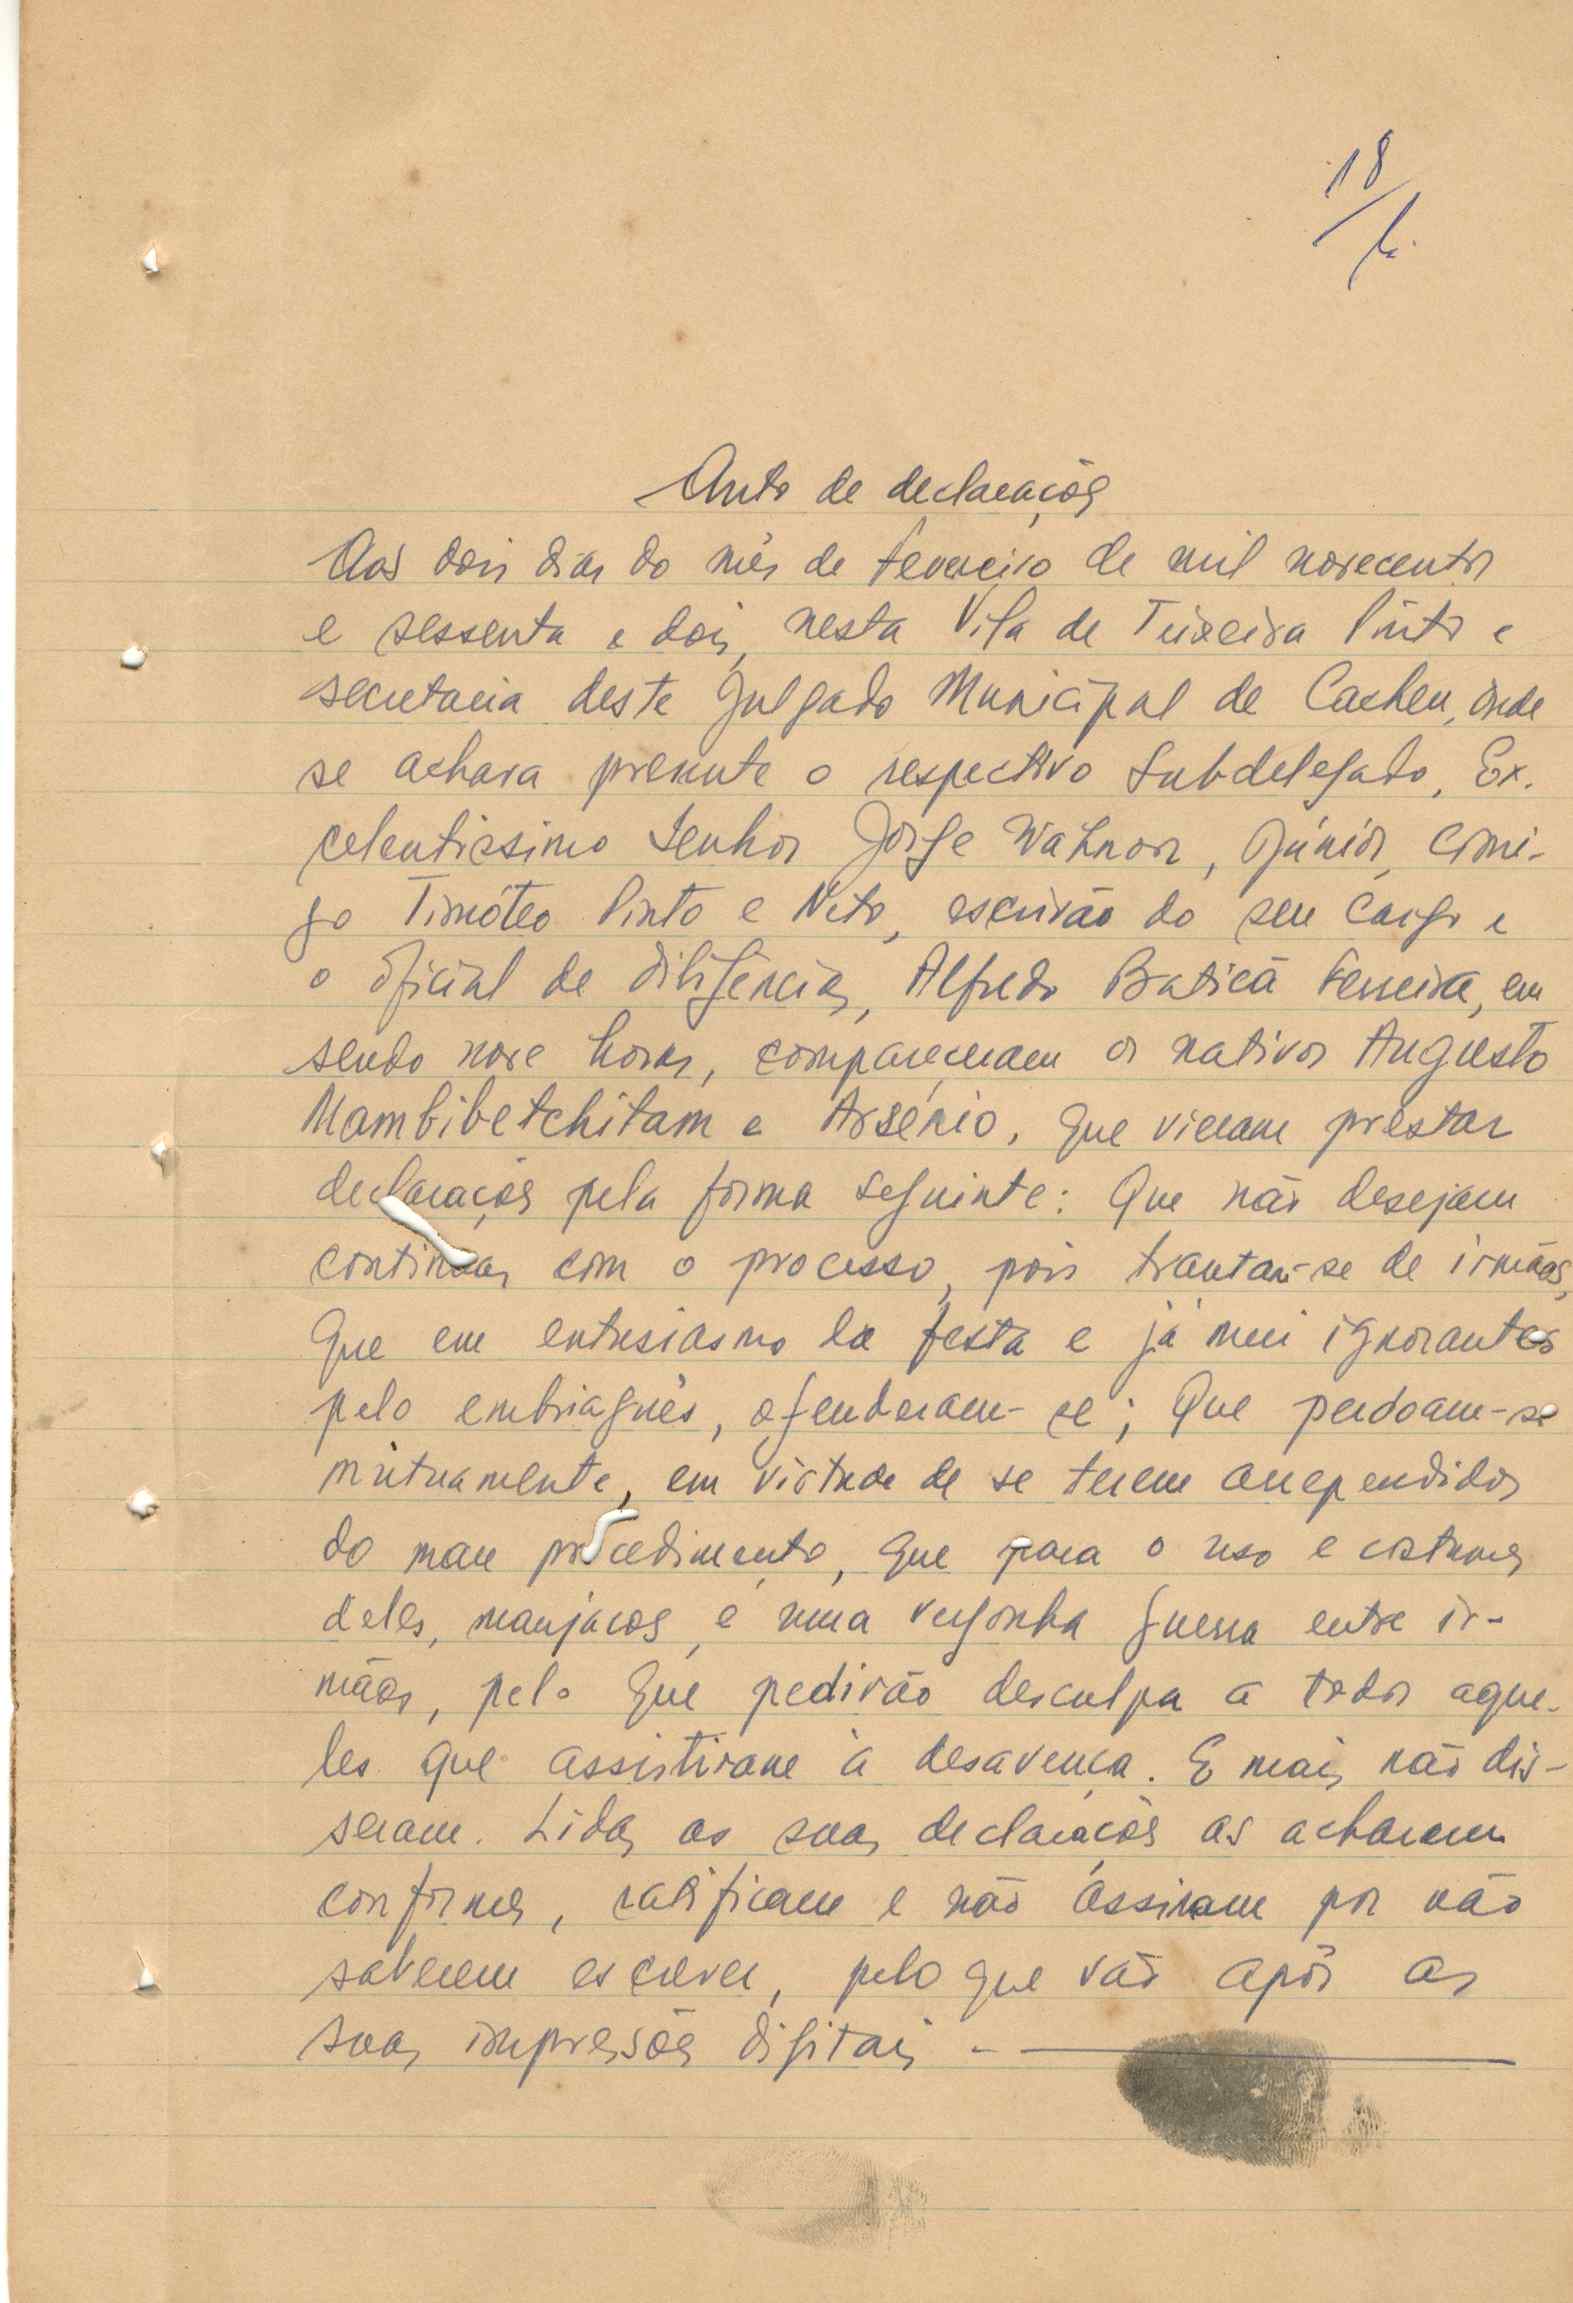 18
Auto de declarações
Aos dois dias do mês de Fevereiro de mil novecentos
e sessenta e dois, nesta Vila de Teixeira Pinto e
secretaria deste Julgado Municipal de Cacheu, onde
se achava presente o respectivo Subdelegado, Ex.
celentissimo Senhor Jorge Wahnon, Júnior, comi-
go Timóteo Pinto e Neto, escrivão do seu cargo e
o oficial de diligências, Alfredo Baticã Ferreira, em
sendo nove horas, compareçeram os nativos Augusto
Mambibetchitam e Arsénio, que vieram prestar
declarações pela forma seguinte: Que não desejam
continuar com o processo, pois trantam-se de irmãos,
que em entusiasmo da festa e já mui ignorantes
pelo embriagués, ofenderam-se; Que perdoam-se
mútuamente, em virtude de se terem arrependidos
do mau procedimento, que para o uso e costumes
deles, manjacos, é uma vergonha guerra entre ir-
mãos, pelo que pedirão desculpa a todos aque-
les que assistiram à desavença. E mais não dis-
seram. Lidas as suas declarações as acharam
conformes, ratificam e não assinam por não
saberem escrever, pelo que vão apôr as
suas impresões digitais -